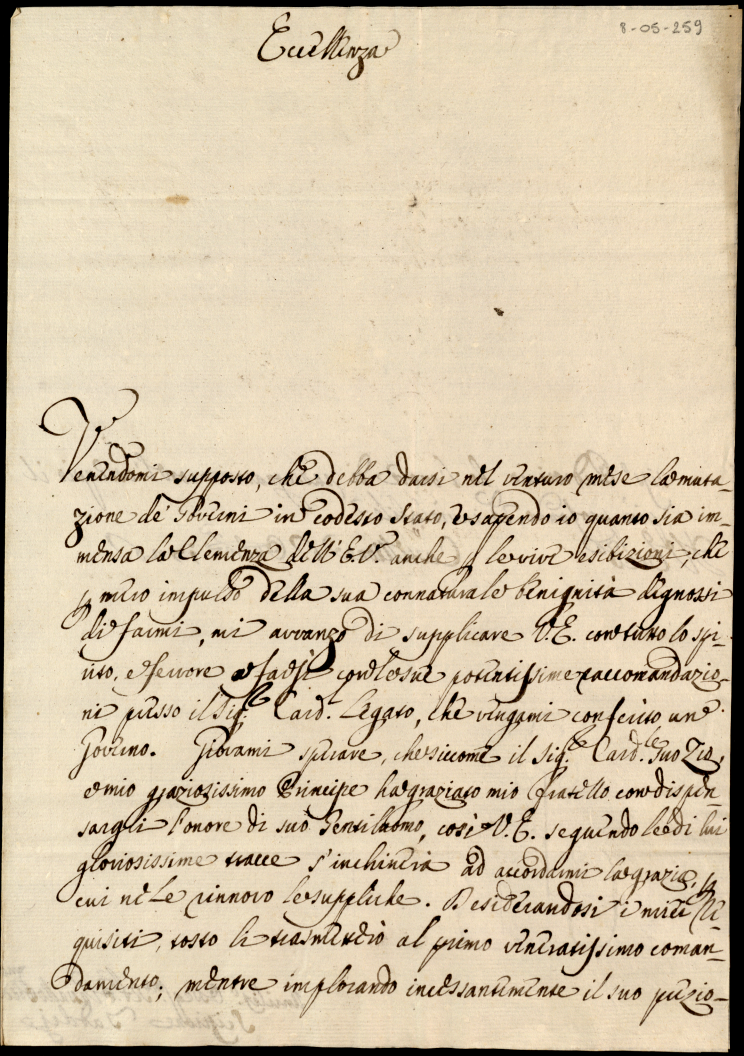 8-05-259
Eccellenza
Venendomi supposto, che debba darsi nel venturo mese la muta-
zione de' Governi in codesto Stato, e sapendo io quanto sia im-
mensa la Clemenza dell' E. V. anche le vive esibizioni, che
mero impulso della sua connaturale benignità degnossi
di farmi, mi avvanzo di supplicare V. E. con tutto lo spi-
rito, e fervore a far sì con le sue potentissime raccomandazio-
ni presso il Sig.r Card. Legato, che vengami conferito un
Governo. Giovami sperare, che siccome il Sig.r Card.le Suo Zio,
e mio graziosissimo Principe ha graziato mio fratello con dispen-
sargli l'onore di suo Gentiluomo, così V. E. seguendo le di lui
gloriosissime tracce s'inchinerà ad accordarmi la grazia,
cui ne Le rinnovo le suppliche. Desiderandosi i miei Re-
quisiti, tosto li trasmetterò al primo veneratissimo coman-
damento; mentre implorando incessantemente il suo prezio-